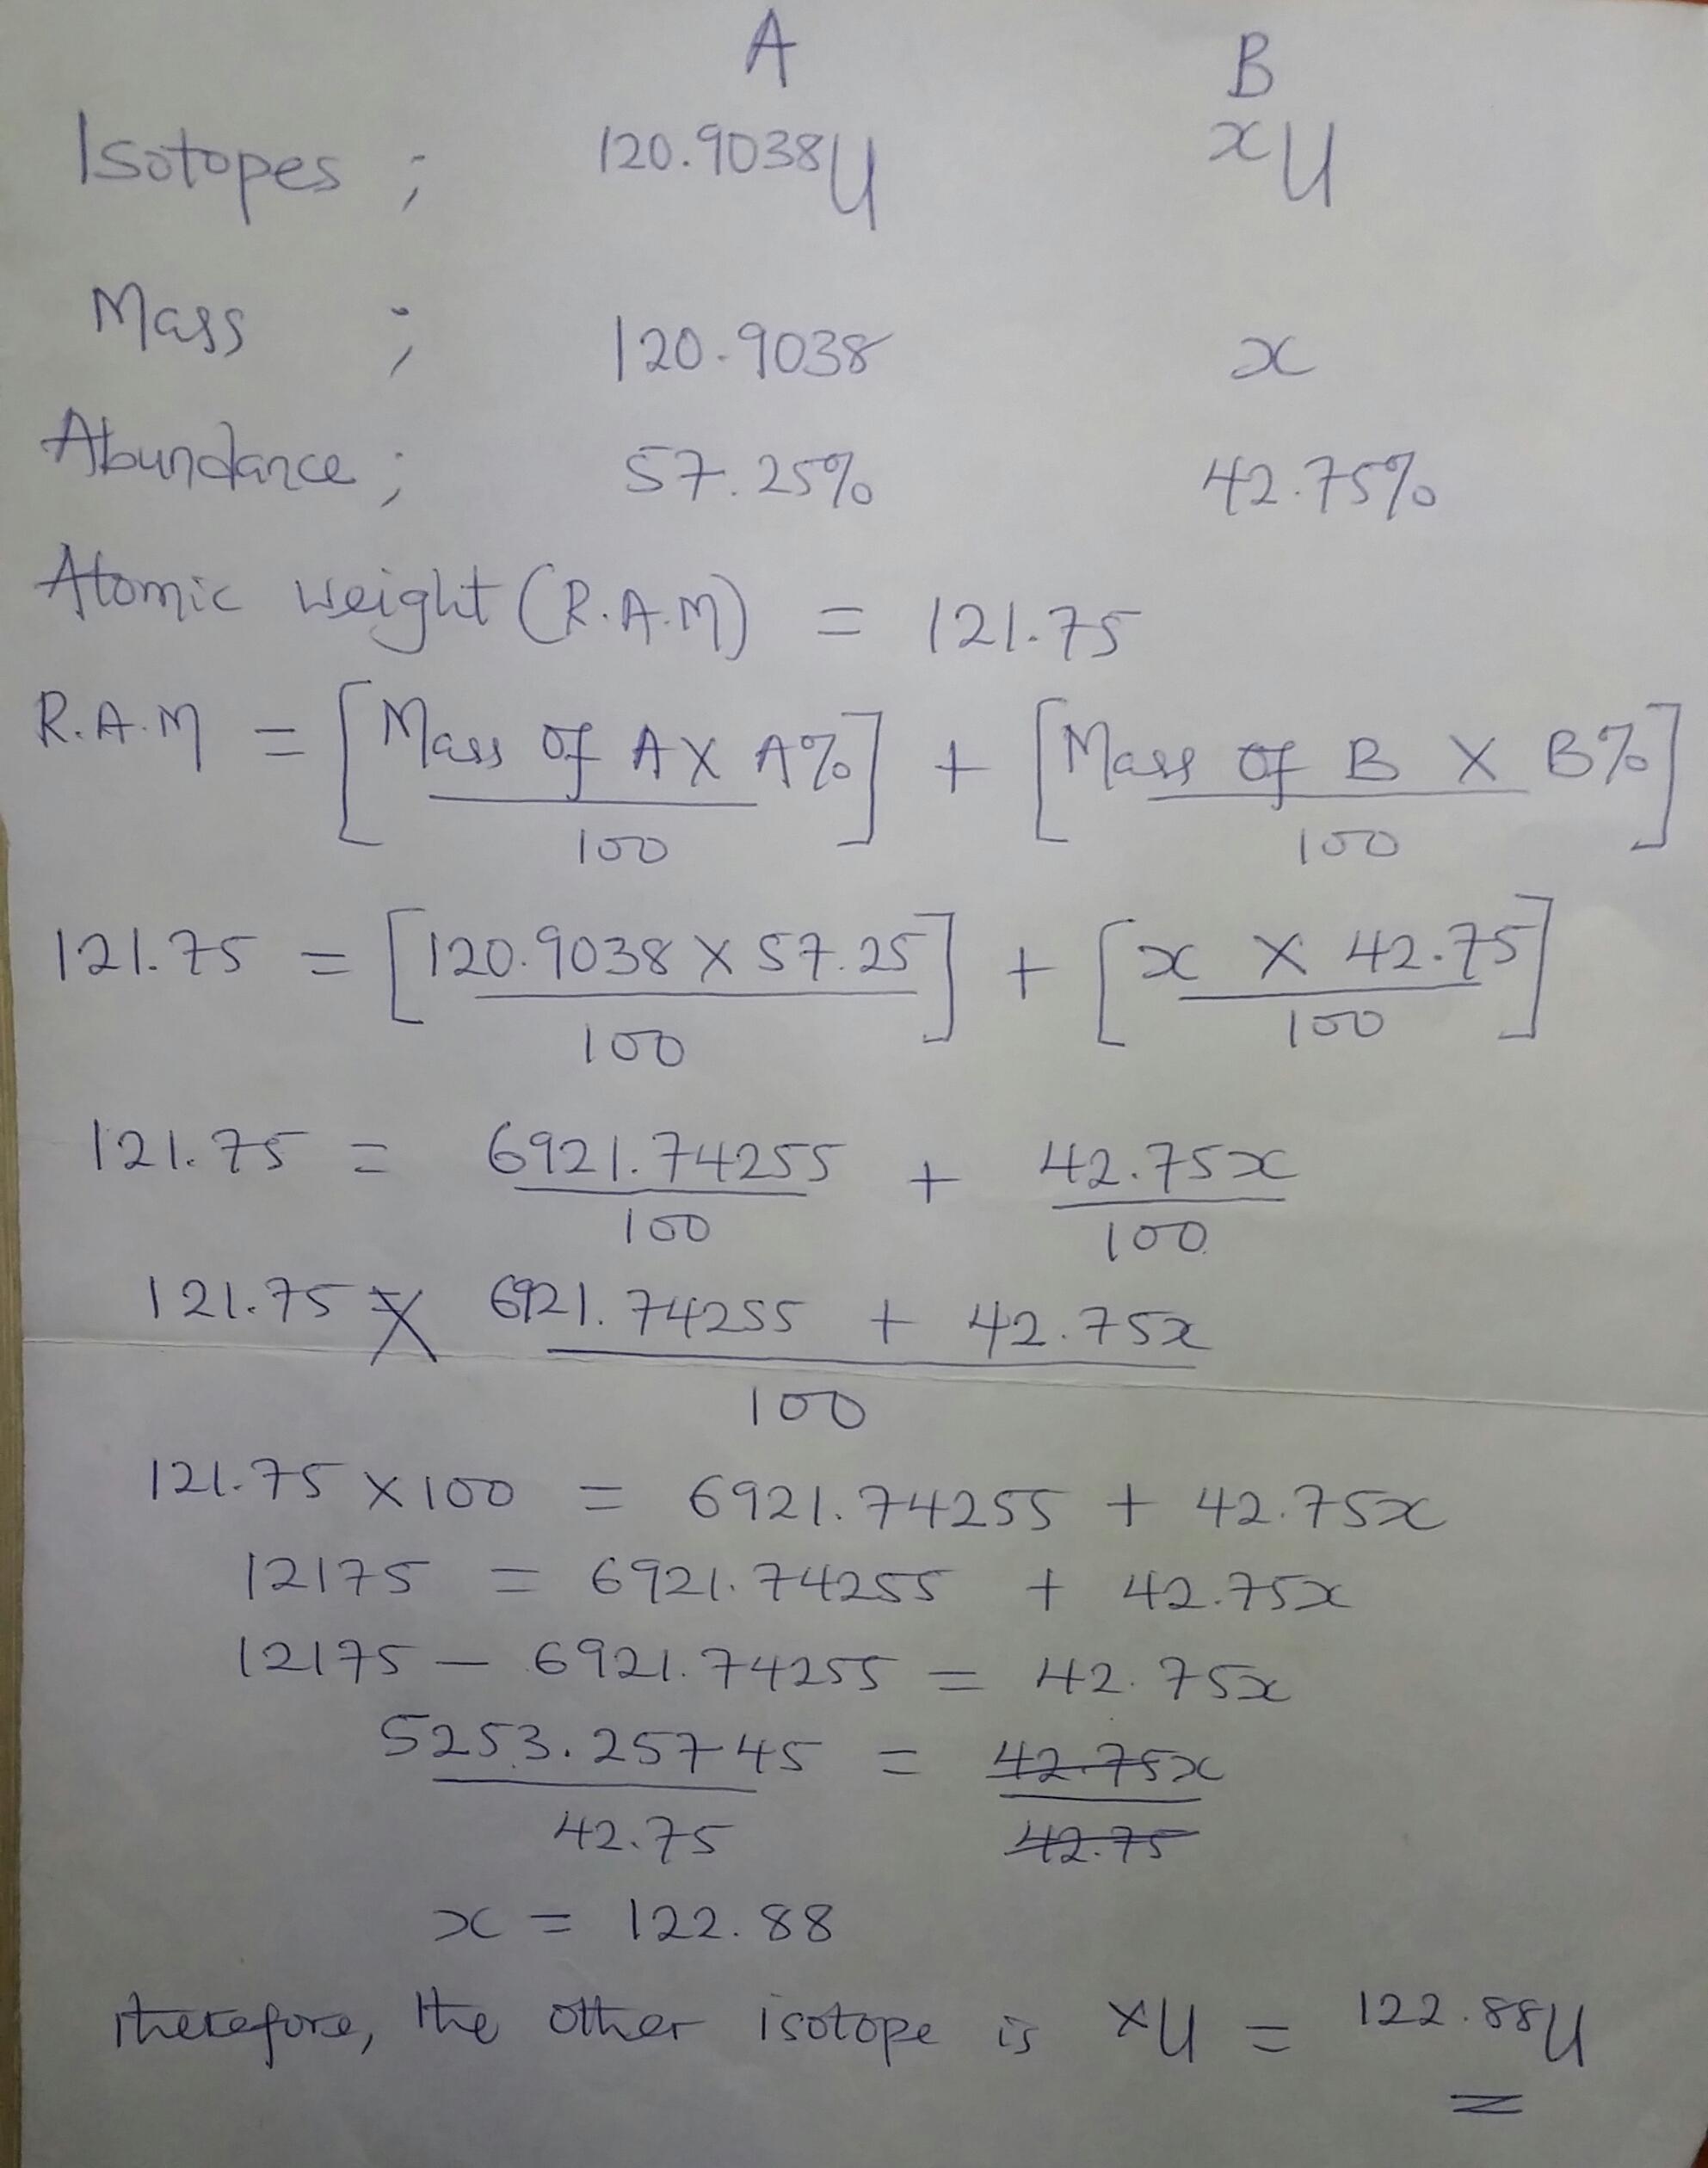 A B
Isotopes ; 120.9038U xU
Mass ; 120.9038 x
Abundance ; 57.25% 42.75%
Atomic weight (R.A.M) = 121.75
R.A.M = [Mass of A X A%] + [Mass of B X B%]
100 100
121.75 = [120.9038 X 57.25] + [x X 42.75]
100 100
121.75 = 6921.74255 + 42.75x
100 100
121.75 = 6921.74255 + 42.75x
100
121.75 X 100 = 6921.74255 + 42.75x
12175 = 6921.74255 + 42.75x
12175 - 6921.74255 = 42.75x
5253.25745 = 42.75x
42.75 42.75
x = 122.88
therefore, the other isotope is xU = 122.88U